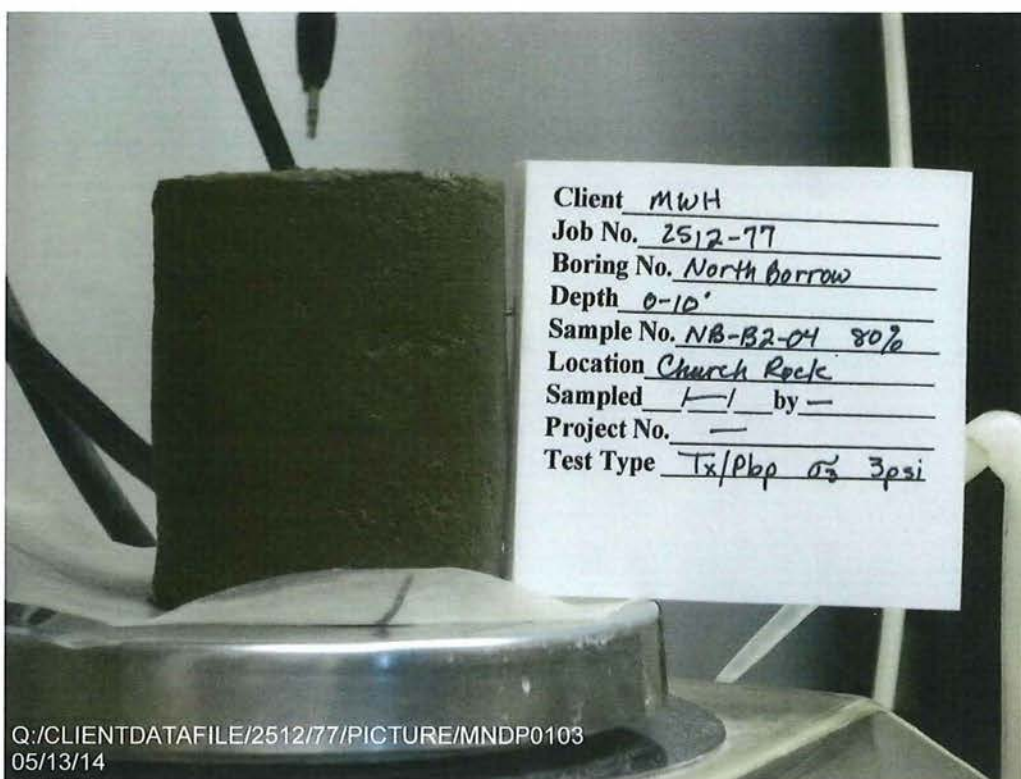 Client MWH
Job No. 2512-77
Boring No. North Borrow
Depth 0-10'
Sample No. NB-B2-04 80%
Location Church Rock
Sampled / — / by —
Project No. —
Test Type Tx/Pbp σ3 3psi
Q:/CLIENTDATAFILE/2512/77/PICTURE/MNDP0103
05/13/14